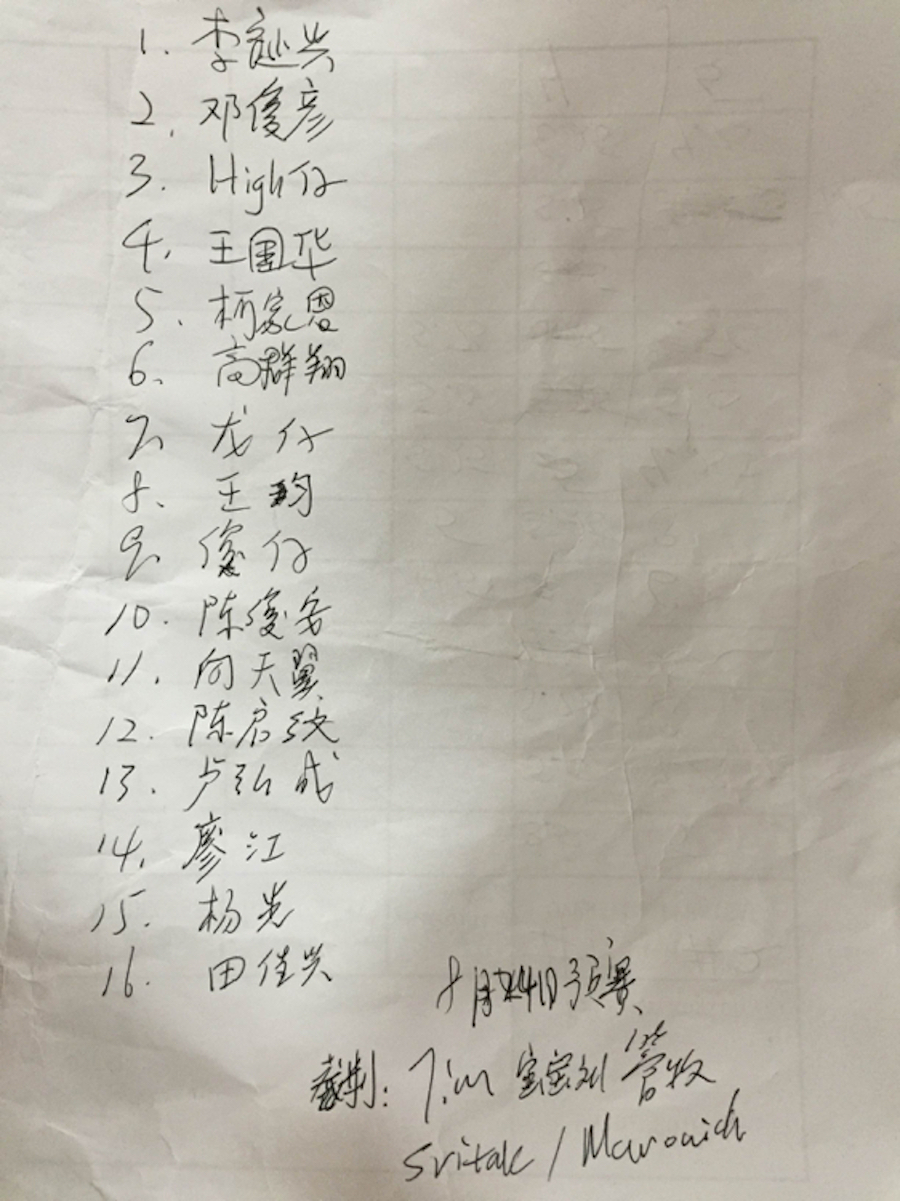 1. 李逊兴
2. 邓俊彦
3. High仔
4. 王国华
5. 柯家恩
6. 高群翔
7. 龙仔
8. 王昀
9. 俊仔
10. 陈俊安
11. 向天翼
12. 陈启纹
13. 卢弘成
14. 廖江
15. 杨光
16. 田佳兴
8月24日预赛
裁判: Tim 宝宝刘 管牧
Sritak /